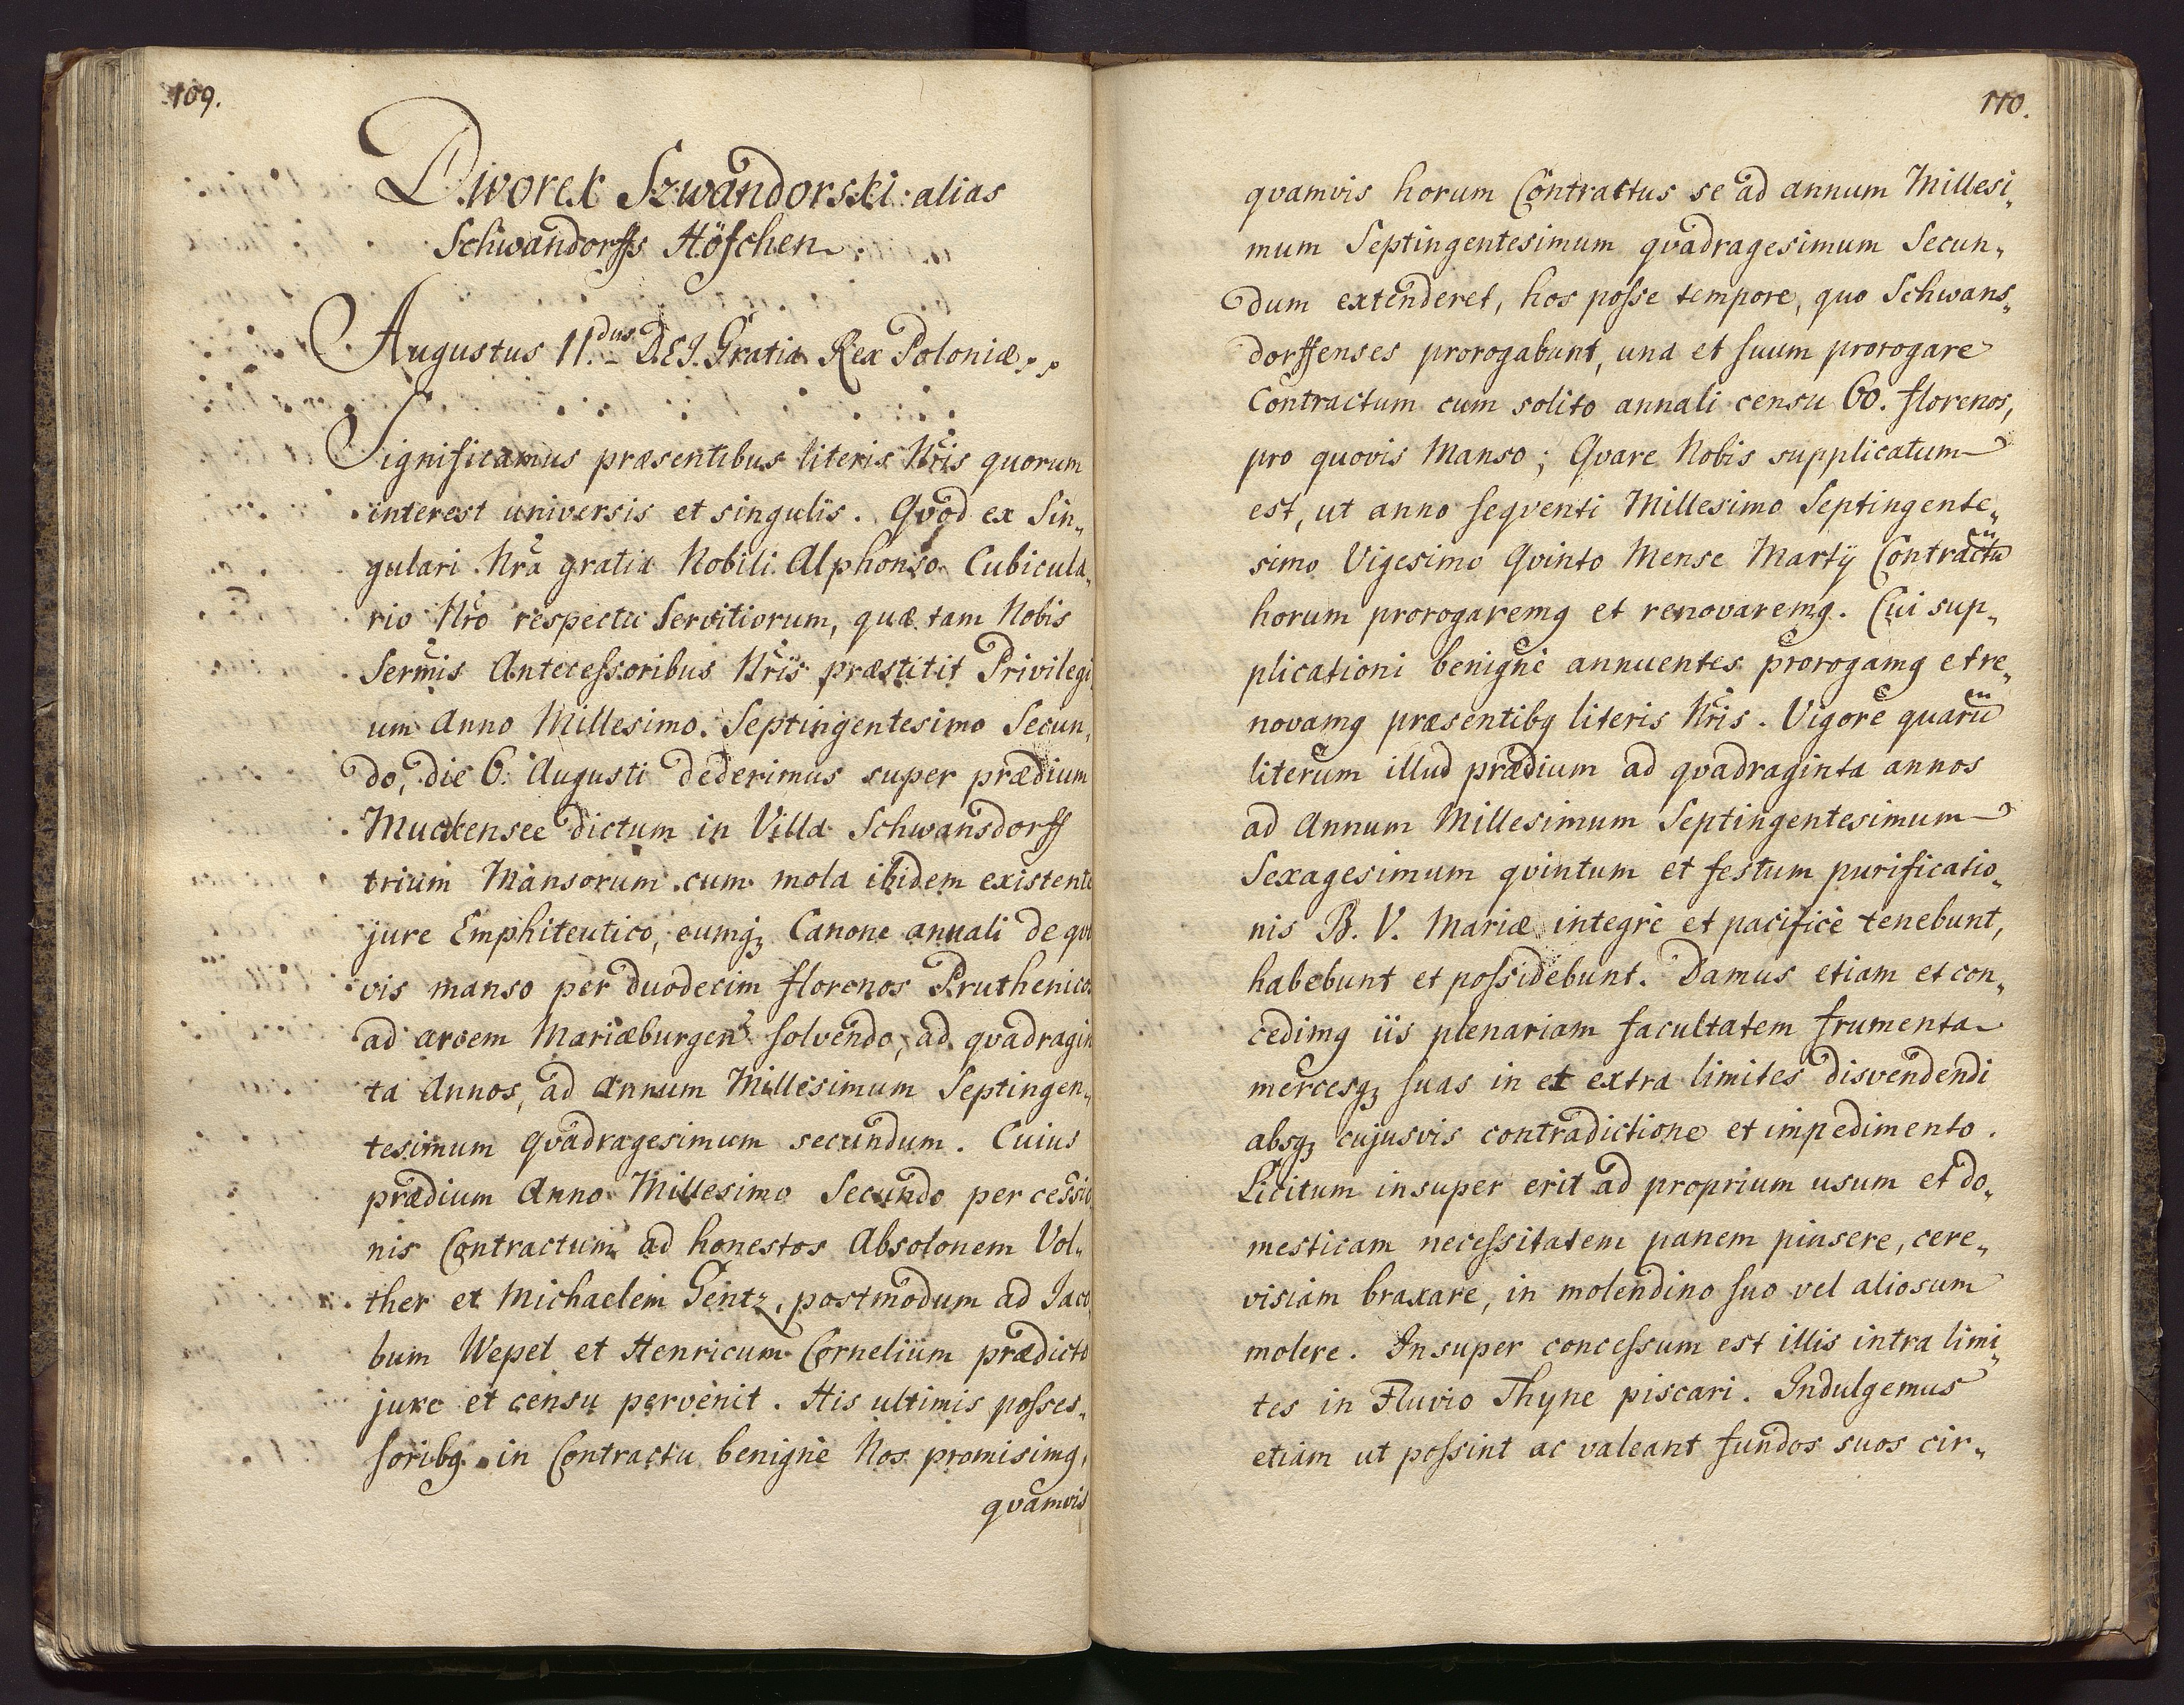 109.
Dworek Szwandorski alias
Schwandorffs Höfchen
Augustus II.dus DEI Gratia Rex Poloniæ
Significamus præsentibus literis Nris quorum
interest universis et singulis. Qvod ex Sin„
gulari Nra gratia Nobili Alphonso Cubicula„
rio Nro respectu Servitiorum, quæ tam Nobis
Sermis Antecessoribus Nris præstitit Privilegi„
um Anno Millesimo Septingentesimo Secun„
do, die 6. Augusti dederimus super prædium
Muckensee dictum in Villa Schwansdorff
trium Mansorum cum mola ibidem existente
jure Emphiteutico, eumqz Canone annali de qvo
vis manso per duodecim florenos Pruthenicos
ad arcem Mariæburgen solvendo, ad qvadragin
ta Annos, ad Annum Millesimum Septingen„
tesimum Qvadragesimum secundum. Cuius
prædium Anno Millesimo Secundo per cessio
nis Contractum ad honestos Absolonem Vol„
ther et Michaelem Gentz, postmodum ad Jaco
bum Wepel et Henricum Cornelium prædicto
jure et censu pervenit. His ultimis posses„
soribq in Contractu benigne Nos promisimq,
qvamvis
110.
qvamvis horum Contractus se ad annum Millesi„
mum Septingentesimum qvadragesimum Secun„
dum extenderet, hos posse tempore, quo Schwans„
dorffenses prorogabunt, una et suum prorogare
Contractum cum solito annali censu 60. florenos,
pro quovis Manso; Qvare Nobis supplicatum
est, ut anno seqventi Millesimo Septingente„
simo Vigesimo Qvinto Mense Martij Contractū
horum prorogaremq et renovaremq. Cui sup„
plicationi benigne annuentes prorogamq et re„
novamq præsentibq literis Nris. Vigore quarū
literum illud prædium ad qvadraginta annos
ad Annum Millesimum Septingentesimum
Sexagesimum qvintum et festum purificatio„
nis B. V. Mariæ integrè et pacificè tenebunt,
habebunt et possidebunt. Damus etiam et con„
cedimq iis plenariam facultatem frumenta
mercesqz suas in et extra limites disvendendi
absqz cujusvis contradictione et impedimento.
Licitum insuper erit ad proprium usum et do„
mesticam necessitatem panem pinsere, cere„
visiam braxare, in molendino suo vel aliosum
molere. Insuper concessum est illis intra limi„
tes in Fluvio Thyne piscari. Indulgemus
etiam ut possint ac valeant fundos suos cir„